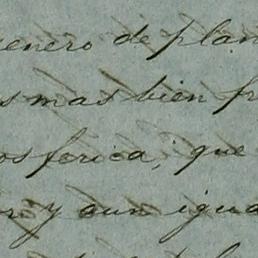 enero de plan
s mas bien fr
osferica, que
ro y aun igua